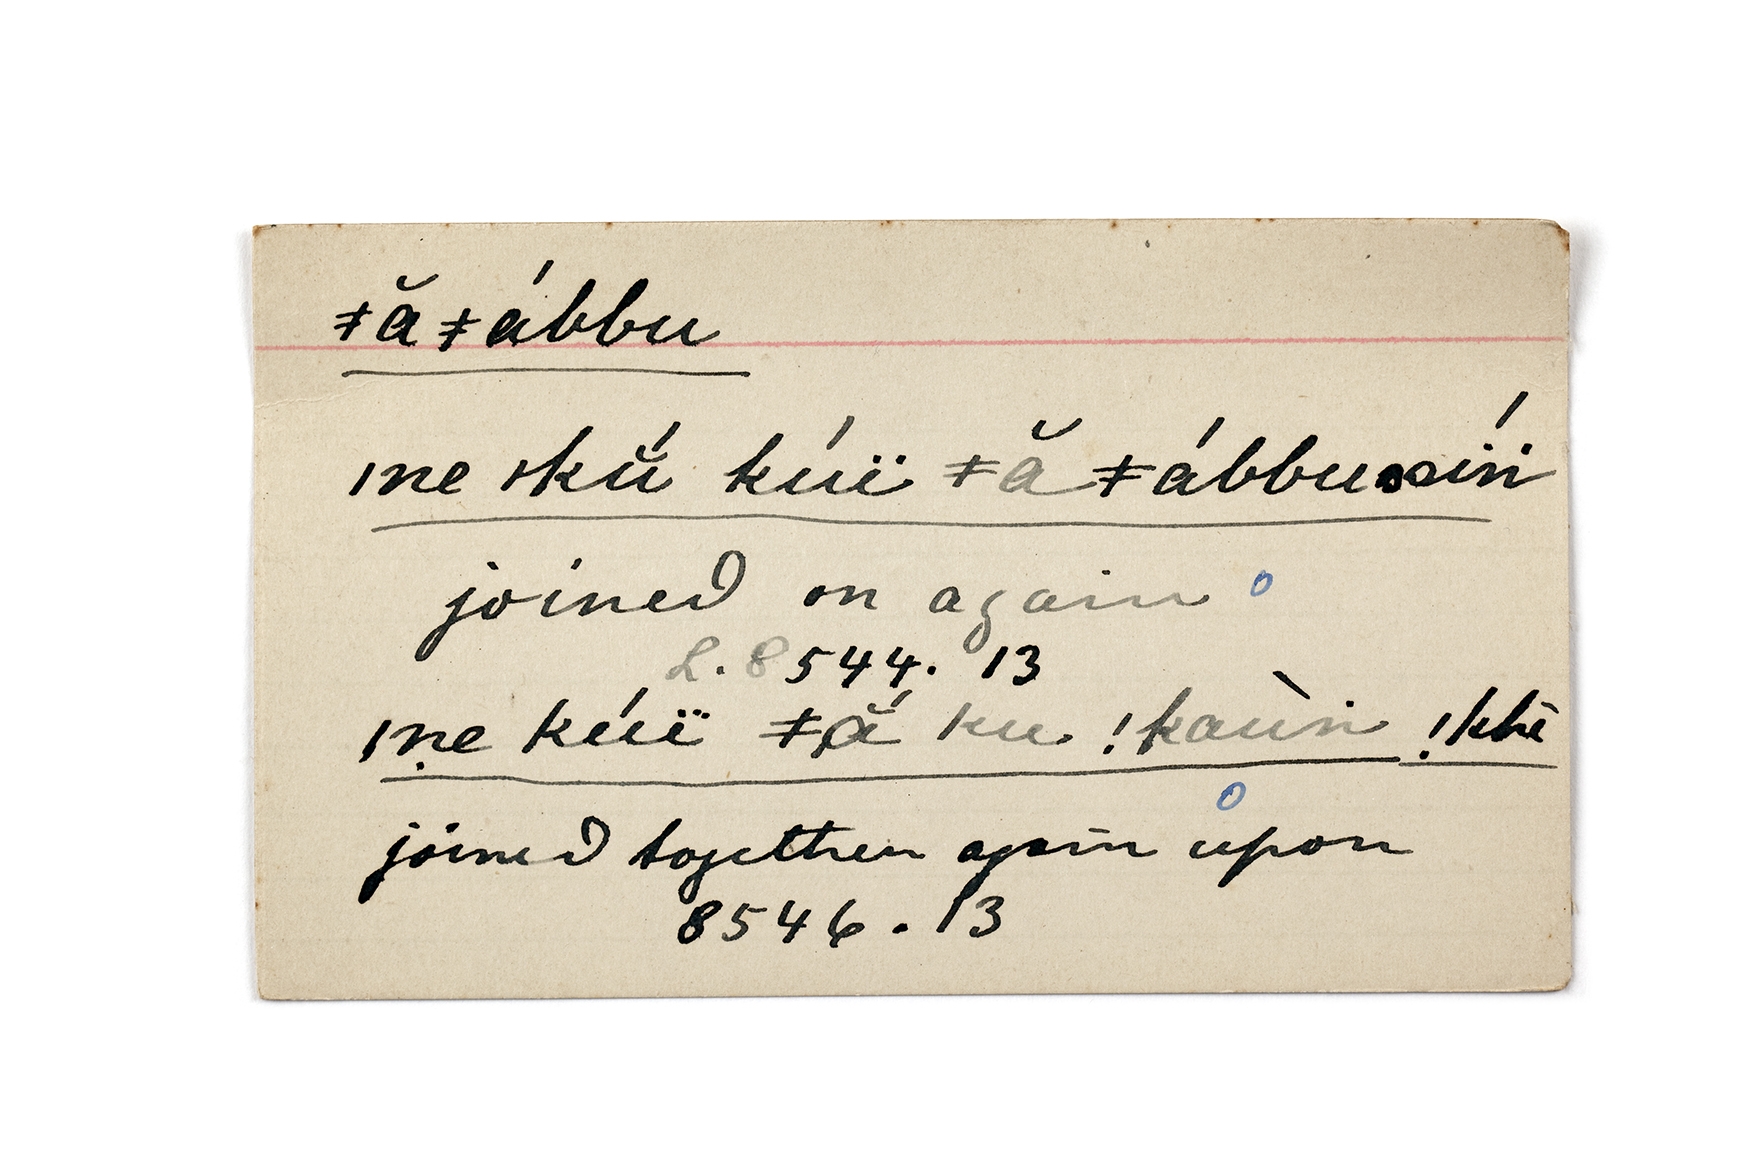 ǂă ǂábbu
ıne ıkŭ́ kúï ǂă ǂábbuïń
joined on again o
L. 8544. 13
ıṇe kúï ǂắ ku !kauǹ !khē
o
joined together again upon
8546. 13